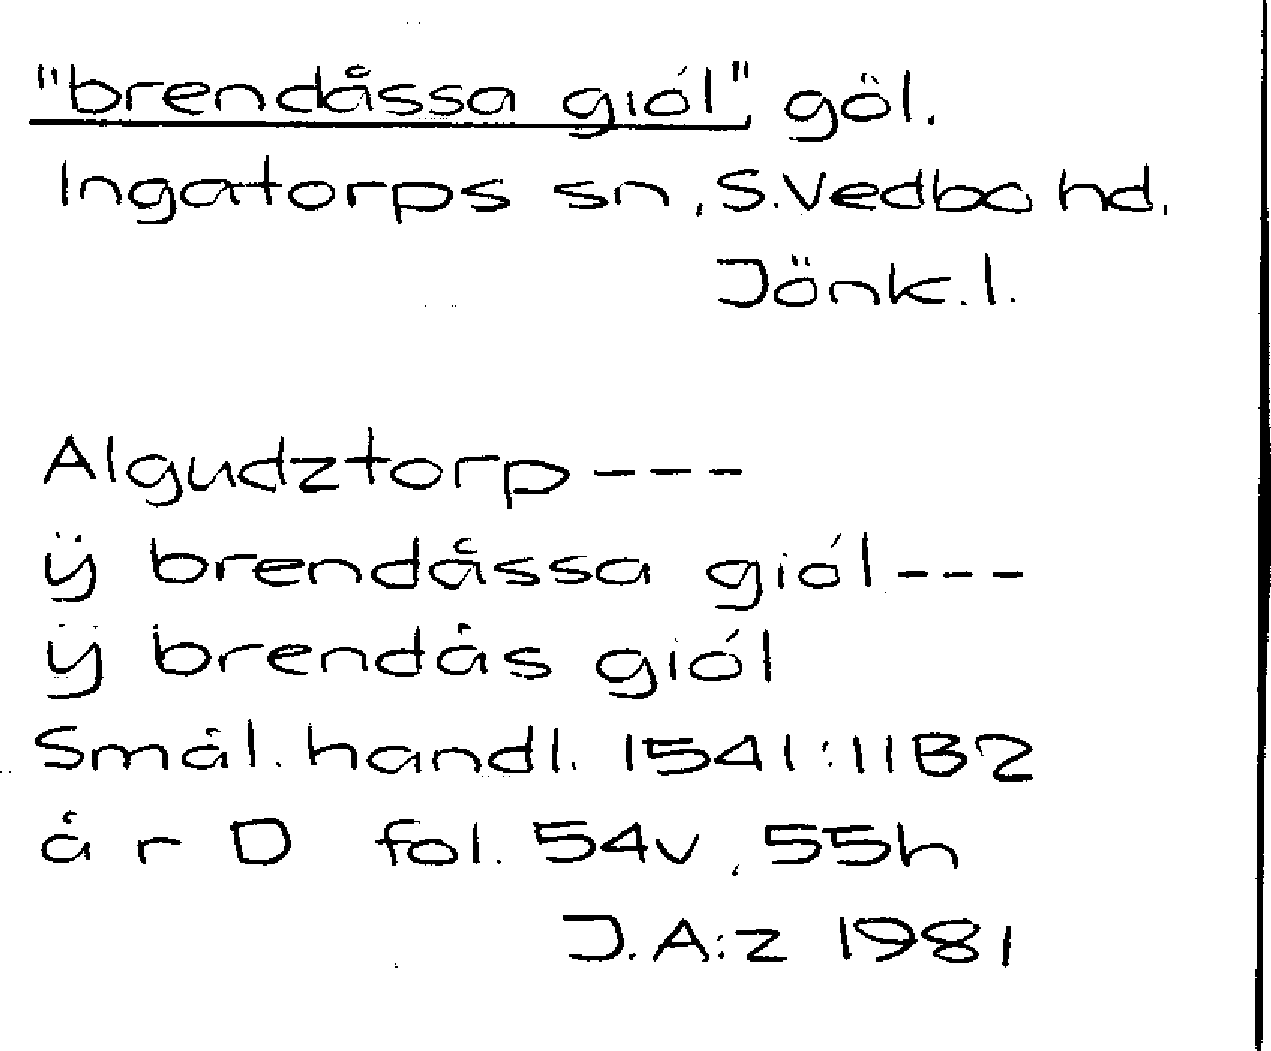 "brendåssa giól" göl.
Ingatorps sn, S.Vedbo hd.
Jönk.l.
Algudztorp---
ÿ brendåssa giól---
ÿ brendås giól
Smål. handl. 1541:11B2
år D fol. 54v, 55h
J.A:z 1981